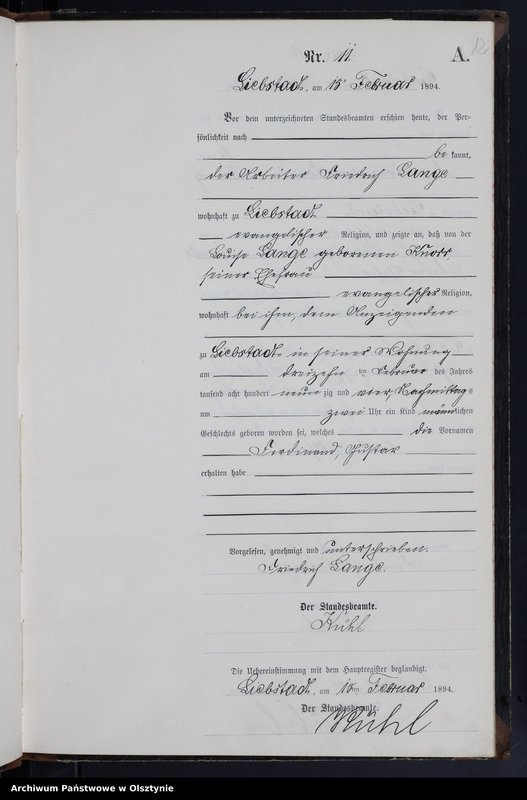 12
Nr. 11
A.
Liebstadt, am 15 Februar 1894.
Vor dem unterzeichneten Standesbeamten erschien heute, der Per-
sönlichkeit nach
be kannt,
der Arbeiter Friedrich Lange
wohnhaft zu Liebstadt
evangelischer Religion, und zeigte an, daß von der
Louise Lange geborenen Knorr,
seiner Ehefrau
evangelischer Religion,
wohnhaft bei ihm, dem Anzeigenden
zu Liebstadt in seiner Wohnung
am dreizehn ten Februar des Jahres
tausend acht hundert neun zig und vier, Nachmittag s
um zwei Uhr ein Kind männlichen
Geschlechts geboren worden sei, welches die Vornamen
Ferdinand, Gustav
erhalten habe
Vorgelesen, genehmigt und unterschrieben.
Friedrich Lange.
Der Standesbeamte.
Kühl
Die Uebereinstimmung mit dem Hauptregister beglaubigt.
Liebstadt, am 15ten Februar 1894.
Der Standesbeamte.
Kühl
Archiwum Państwowe w Olsztynie